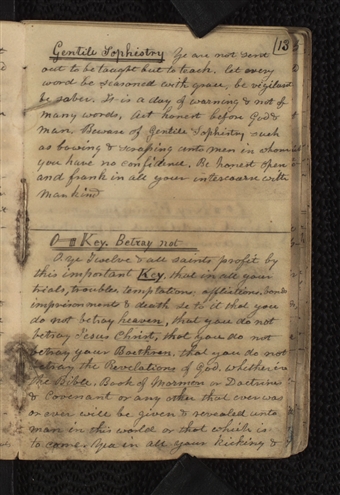 (13
Gentile Sophistry Ye are not send
out to be taught but to teach. let every
word be seasoned with grace, be vigilant
be sober. It is a day of warning & not of
many words, Act honest before God &
man. Beware of Gentile Sophistry such
as bowing & scraping unto men in whom
you have no confidence. Be honest open
and frank in all your intercourse with
mankind
O Key. Betray not
O ye Twelve & all saints, profit by
this important Key, that in all your
trials, troubles, temptation, afflictions, bonds
imprisonments & death se to it that you
do not betray heaven, that you do not
betray Jesus Christ, that you do not
betray your Boethren, that you do not
betray the Revelations of God, whether in
the Bible, Book of Mormon or Doctrine
& Covenant or any other that ever was
or ever will be given & revealed unto
man in this world or that which is
to come. Yea in all your kicking &